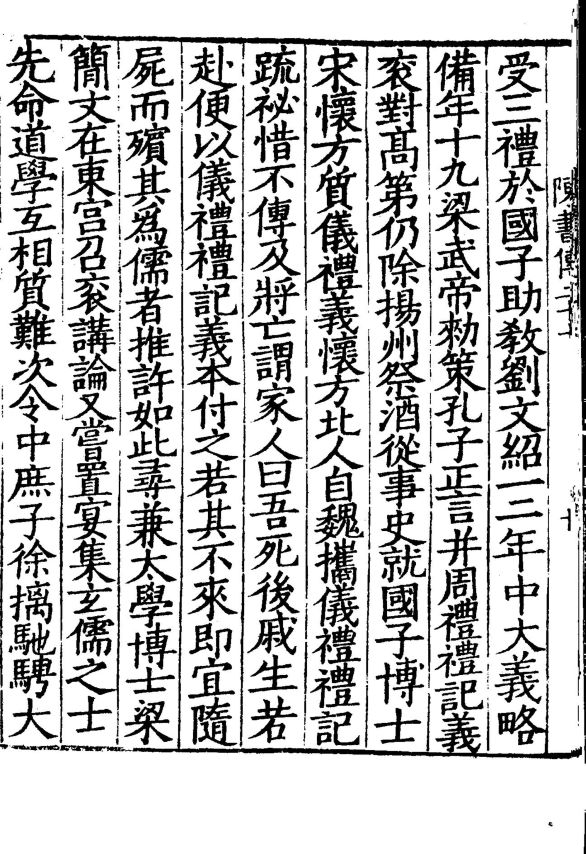 受三禮於國子助敎劉文紹一二年中大義略
備年十九梁武帝勑策孔子正言幷周禮禮記義
衮對髙第仍除揚州祭酒從事史就國子博士
宋懷方質儀禮義懷方北人自魏攜儀禮禮記
疏祕惜不傳及將亡謂家人曰吾死後戚生若
赴便以儀禮禮記義本付之若其不來即宜隨
屍而殯其爲儒者推許如此尋兼太學博士梁
簡文在東宮召衮講論又嘗置宴集玄儒之士
先命道學互相質難次令中庶子徐摛馳騁大
陳書傳